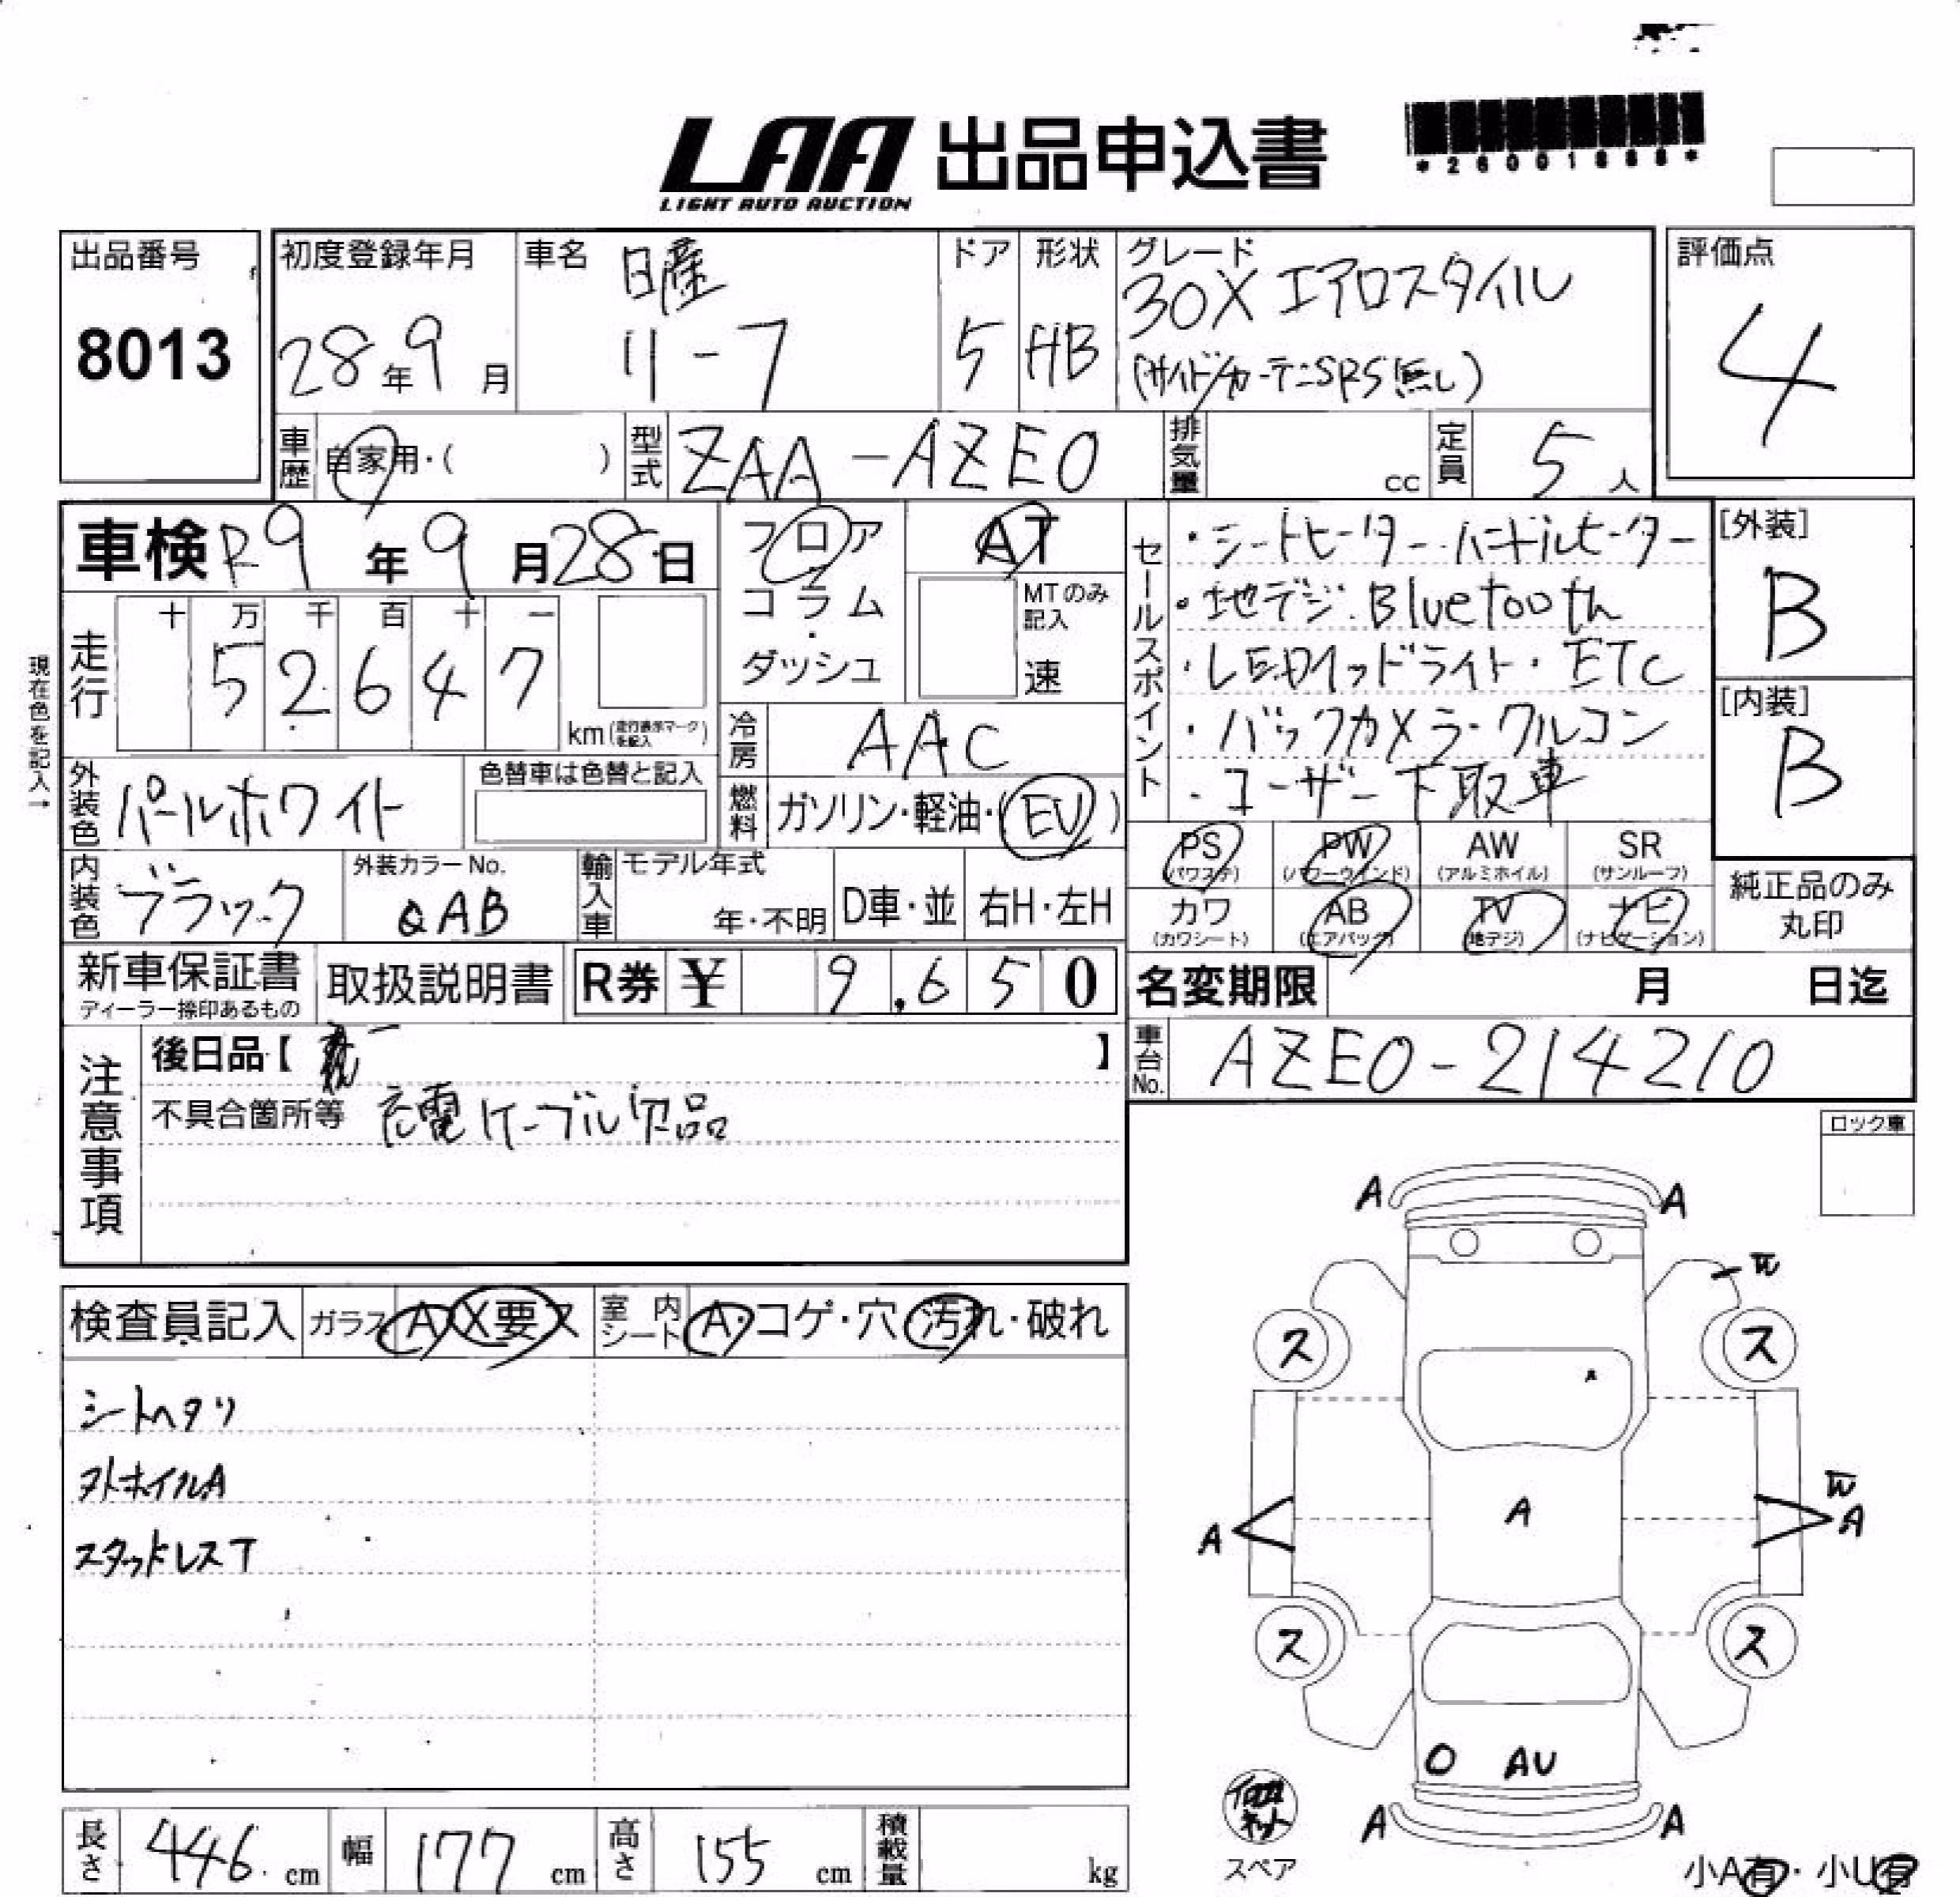 LAA 出品申込書
LIGHT AUTO AUCTION
*26001888*
出品番号
8013
初度登録年月
28年9月
車名
日産
リーフ
ドア
5
形状
HB
グレード
30X エアロスタイル
(サイド/カーテンSRS無し)
評価点
4
車歴
自家用・( )
型式
ZAA-AZE0
排気量
cc
定員
5人
車検 R9年9月28日
フロア
コラム
・
ダッシュ
AT
MTのみ記入
速
セールスポイント
・シートヒーター・ハンドルヒーター
・地デジ・Bluetooth
・LEDヘッドライト・ETC
・バックカメラ・クルコン
・ユーザー下取車
[外装]
B
[内装]
B
現在色を記入→
走行
十 万 千 百 十 一
5 2 6 4 7
km(走行表示マークを記入)
冷房
AAC
外装色
パールホワイト
色替車は色替と記入
燃料
ガソリン・軽油・(EV)
内装色
ブラック
外装カラーNo.
QAB
輸入車
モデル年式
年・不明
D車・並
右H・左H
PS
(パワステ)
PW
(パワーウインド)
AW
(アルミホイル)
SR
(サンルーフ)
カワ
(カワシート)
AB
(エアバッグ)
TV
(地デジ)
ナビ
(ナビゲーション)
純正品のみ
丸印
新車保証書
ディーラー捺印あるもの
取扱説明書
R券 ¥ 9,650
名変期限 月 日迄
車台No.
AZE0-214210
注意事項
後日品【 】
不具合箇所等 充電ケーブル欠品
ロック車
検査員記入
ガラス A X要ス
室内シート A・コゲ・穴・汚れ・破れ
シートヘタリ
ヌトホイルA
スタッドレスT
A A
W
ス ス
A
W
A A A
ス ス
O AU
A A
スペア
小A有・小U有
長さ 446 cm
幅 177 cm
高さ 155 cm
積載量 kg